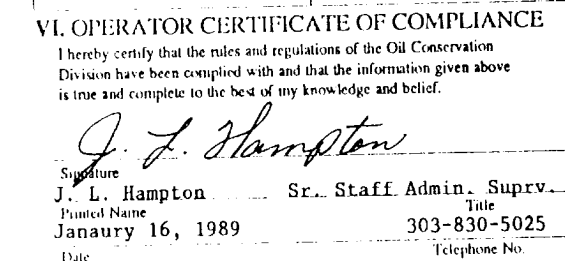 VI. OPERATOR CERTIFICATE OF COMPLIANCE
I hereby certify that the rules and regulations of the Oil Conservation
Division have been complied with and that the information given above
is true and complete to the best of my knowledge and belief.
J. L. Hampton
Signature
J. L. Hampton Sr. Staff Admin. Suprv.
Printed Name Title
Janaury 16, 1989 303-830-5025
Date Telephone No.